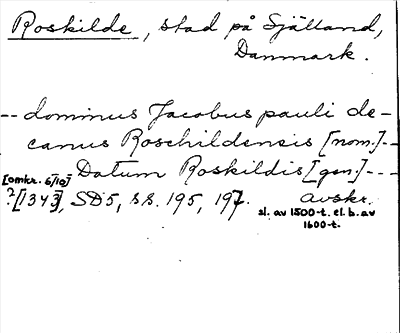 Roskilde, stad på Själland,
Danmark.
-- dominus Jacobus pauli de-
canus Roschildensis [nom.]--
Datum Roskildis [gen.]---
[omkr. 6/10]
?[1343], SD5, s.s. 195, 197. avskr.
sl. av 1500-t. el. b. av
1600-t.